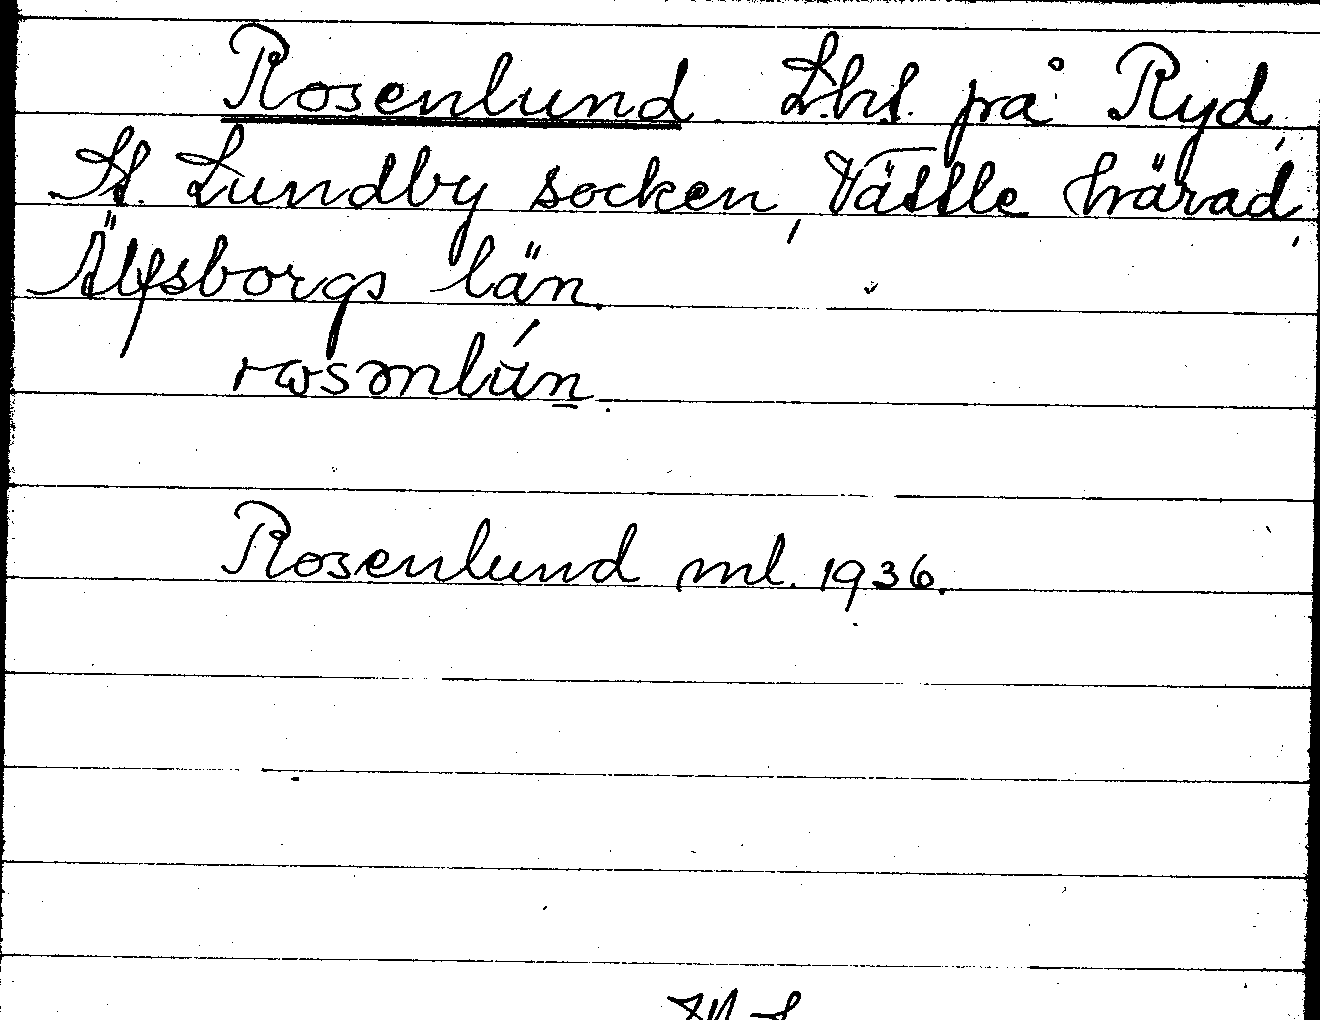 Rosenlund. Lht. på Ryd,
St. Lundby socken, Vättle härad,
Älfsborgs län.
Rosenlund ml. 1936.